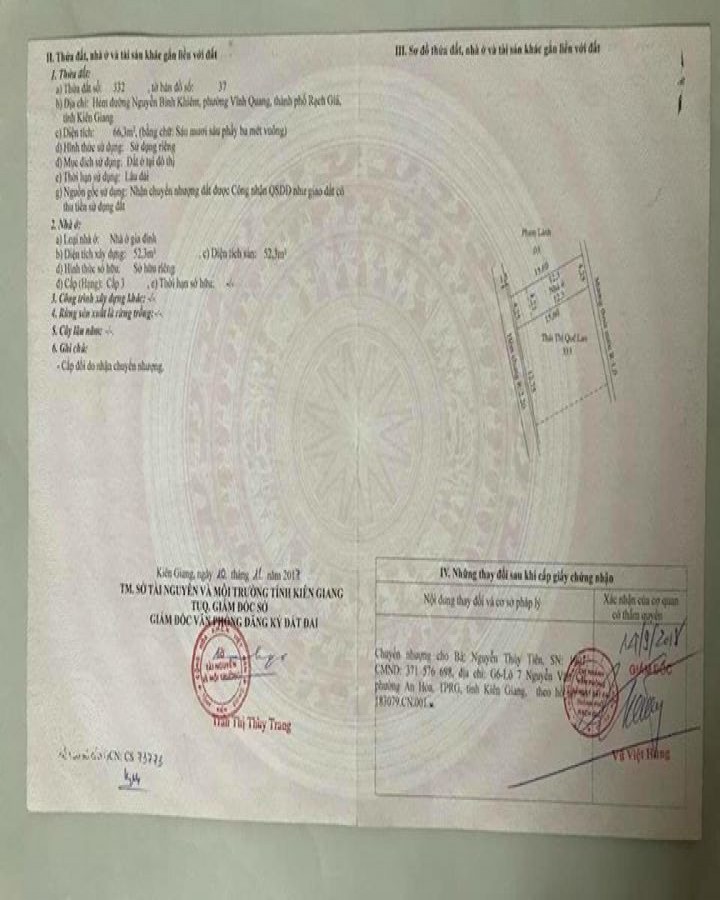 II. Thửa đất, nhà ở và tài sản khác gắn liền với đất
1. Thửa đất:
a) Thửa đất số: 332 , tờ bản đồ số: 37
b) Địa chỉ: Hẻm đường Nguyễn Bỉnh Khiêm, phường Vĩnh Quang, thành phố Rạch Giá,
tỉnh Kiên Giang
c) Diện tích: 66,3m², (bằng chữ: Sáu mươi sáu phẩy ba mét vuông)
d) Hình thức sử dụng: Sử dụng riêng
đ) Mục đích sử dụng: Đất ở tại đô thị
e) Thời hạn sử dụng: Lâu dài
g) Nguồn gốc sử dụng: Nhận chuyển nhượng đất được Công nhận QSDĐ như giao đất có
thu tiền sử dụng đất
2. Nhà ở:
a) Loại nhà ở: Nhà ở gia đình
b) Diện tích xây dựng: 52,3m² , c) Diện tích sàn: 52,3m²
d) Hình thức sở hữu: Sở hữu riêng
đ) Cấp (Hạng): Cấp 3 , e) Thời hạn sở hữu: -/-
3. Công trình xây dựng khác: -/-
4. Rừng sản xuất là rừng trồng: -/-
5. Cây lâu năm: -/-
6. Ghi chú:
- Cấp đổi do nhận chuyển nhượng.
Kiên Giang, ngày 10 tháng 11 năm 2017
TM. SỞ TÀI NGUYÊN VÀ MÔI TRƯỜNG TỈNH KIÊN GIANG
TUQ. GIÁM ĐỐC SỞ
GIÁM ĐỐC VĂN PHÒNG ĐĂNG KÝ ĐẤT ĐAI
TÀI NGUYÊN
VÀ MÔI TRƯỜNG
Trần Thị Thùy Trang
CN: CS 73773
III. Sơ đồ thửa đất, nhà ở và tài sản khác gắn liền với đất
Phạm Lành
15,60
12,3
Nhà ở
12,3
4,25
4,25
4,25
15,60
Thái Thị Quế Lan
333
12,75
IV. Những thay đổi sau khi cấp giấy chứng nhận
Nội dung thay đổi và cơ sở pháp lý
Xác nhận của cơ quan
có thẩm quyền
Chuyển nhượng cho Bà: Nguyễn Thùy Tiên, SN:
CMND: 371 576 698, địa chỉ: G6-Lô 7 Nguyễn
phường An Hòa, TPRG, tỉnh Kiên Giang, theo
183079.CN.001.
14/9/2018
GIÁM ĐỐC
Vũ Việt Hùng